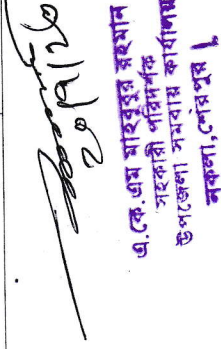 এ.কে.এম মাহবুবুর রহমান
সহকারী পরিদর্শক
উপজেলা সমবায় কার্যালয়
নকলা, শেরপুর।